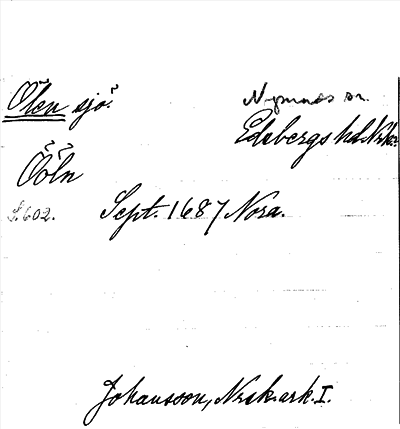 Ölen sjö.
Nysunds sn.
Edsbergs hd. Nrke.
Ööln
S. 602. Sept. 1687 Nora.
Johansson, Nrsk. ark. I.